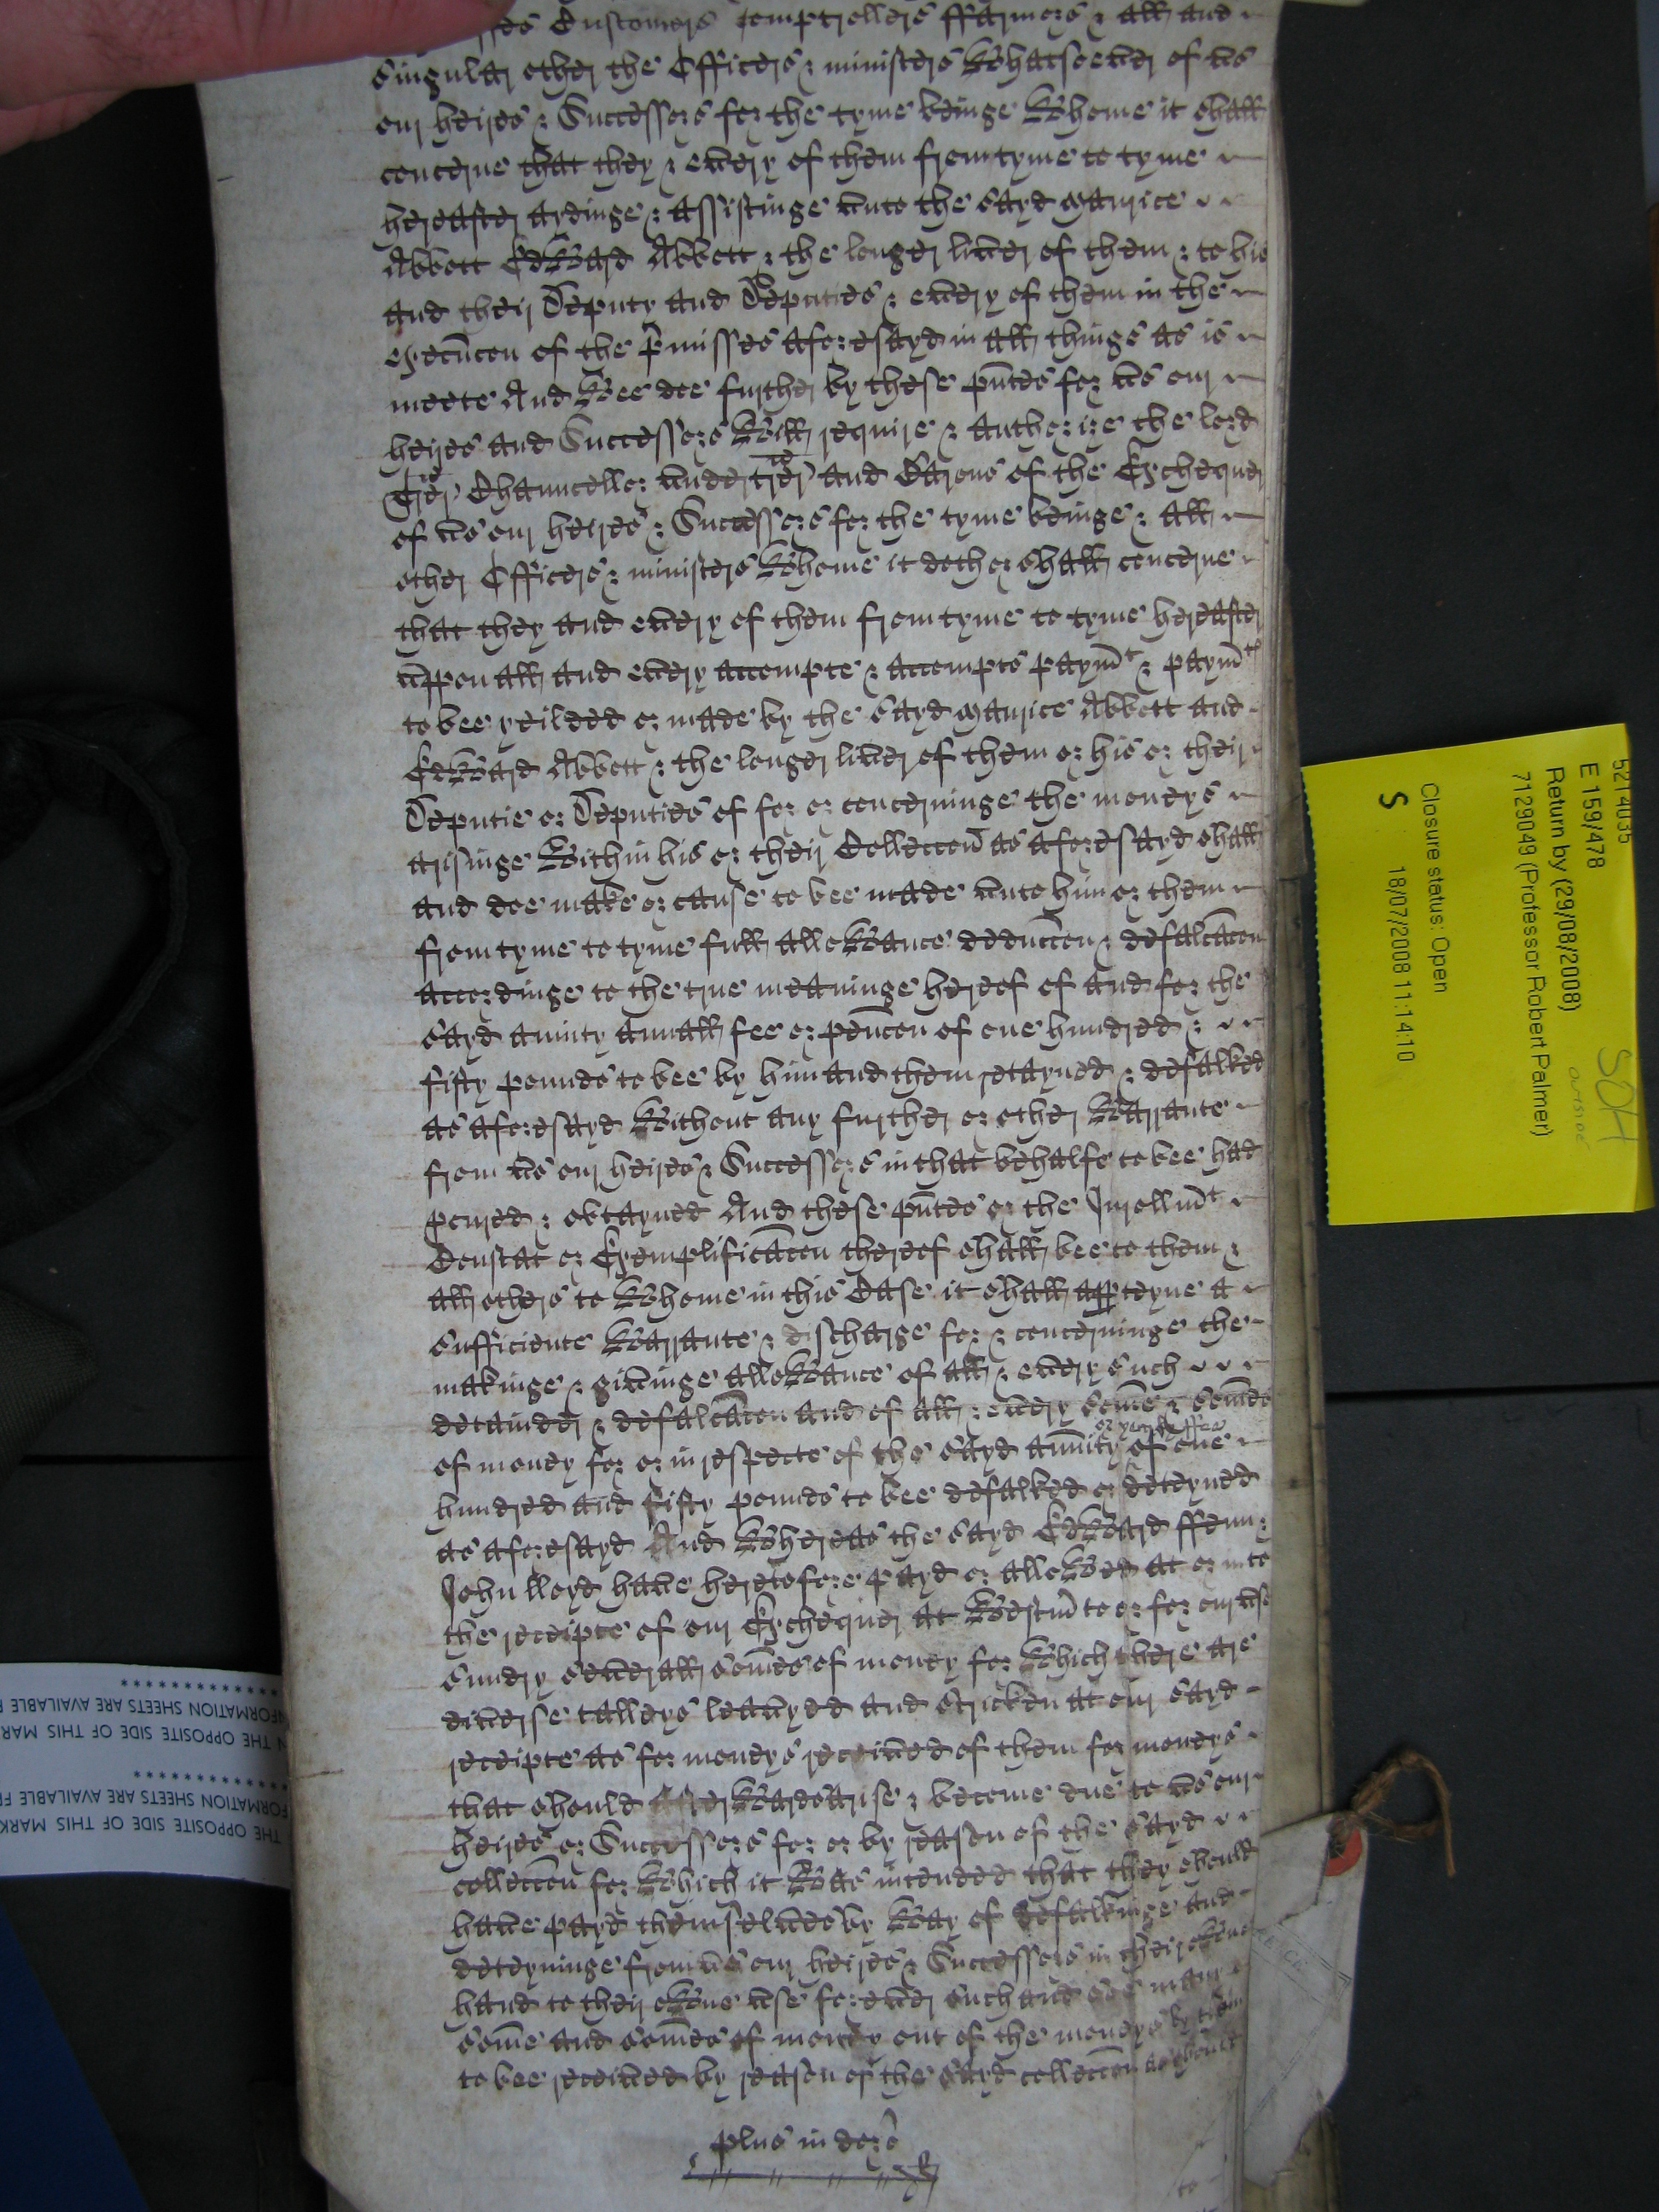 Customers Comptrollers ffarmors & all and
singular other the Officers & ministers whatsoever of us
our heires & Successors for the tyme beinge whome it shall
concerne that they & every of them from tyme to tyme
hereafter aydinge & assistinge unto the sayd Maurice
Abbott Edward Abbott & the longer liver of them & to his
and their Deputy and Deputies & every of them in the
execucon of the pmisses aforesayd in all things as is
meete And wee doe further by these pntes for us our
heires and Successors will require & authorize the lord
Trer Chauncellor undertrer and Barons of the Exchequer
of us our heires & Successors for the tyme beinge & all
other Officers & ministers whome it doth or shall concerne
that they and every of them from tyme to tyme hereafter
uppon all and every accompte & accompts paymt & paymts
to bee yeilded or made by the sayd Maurice Abbott and
Edward Abbott & the longer liver of them or his or their
Deputie or Deputies of for or concerninge the moneys
arisinge within his or their Colleccon as aforesayd shall
and doe make or cause to bee made unto him or them
from tyme to tyme full allowance deduccon & defalcacon
accordinge to the true meaninge hereof of and for the
sayd anuity annall fee or pencon of one hundred &
fifty pounds to bee by him and them retayned & defalked
as aforesayd without any further or other warrante
from us our heires & Successors in that behalfe to bee had
pcured & obtayned And these pntes or the Inrollmt
Constat or Exemplificacon thereof shall bee to them &
all others to whome in this Case it shall apperteyne a
sufficiente warrante & discharge for & concerninge the
makinge & givinge allowance of all & every such
detainder & defalcacon and of all & every some & somes
of money for or in respecte of the sayd anuity or yearely ffee of one
hundred and fifty pounds to bee defalked or deteyned
as aforesayd And whereas the sayd Edward ffenn &
John lloyd have heretofore payd or allowed at or into
the receipte of our Exchequer at Westm to or for our use
sundry severall somes of money for which there are
diverse talleys leavyed and stricken at our sayd
receipte as for moneys received of them for moneys
that should afterwards arise & become due to us our
heires or Successors for or by reason of the sayd
colleccon for which it was intended that they should
have payd themselves by way of defalkinge and
deteyninge from us our heires & Successors in their owne
hand to their owne use for ever such and soe many
some and somes of money out of the moneys by them
to bee received by reason of the sayd colleccon as should
plus in dors
5214035
E 159/478
Return by (29/08/2008)
7129049 (Professor Robert Palmer)
Closure status: Open
S 18/07/2008 11:14:10
THE OPPOSITE SIDE OF THIS MARK
FORMATION SHEETS ARE AVAILABLE F
**************
N THE OPPOSITE SIDE OF THIS MARK
NFORMATION SHEETS ARE AVAILABLE
**************